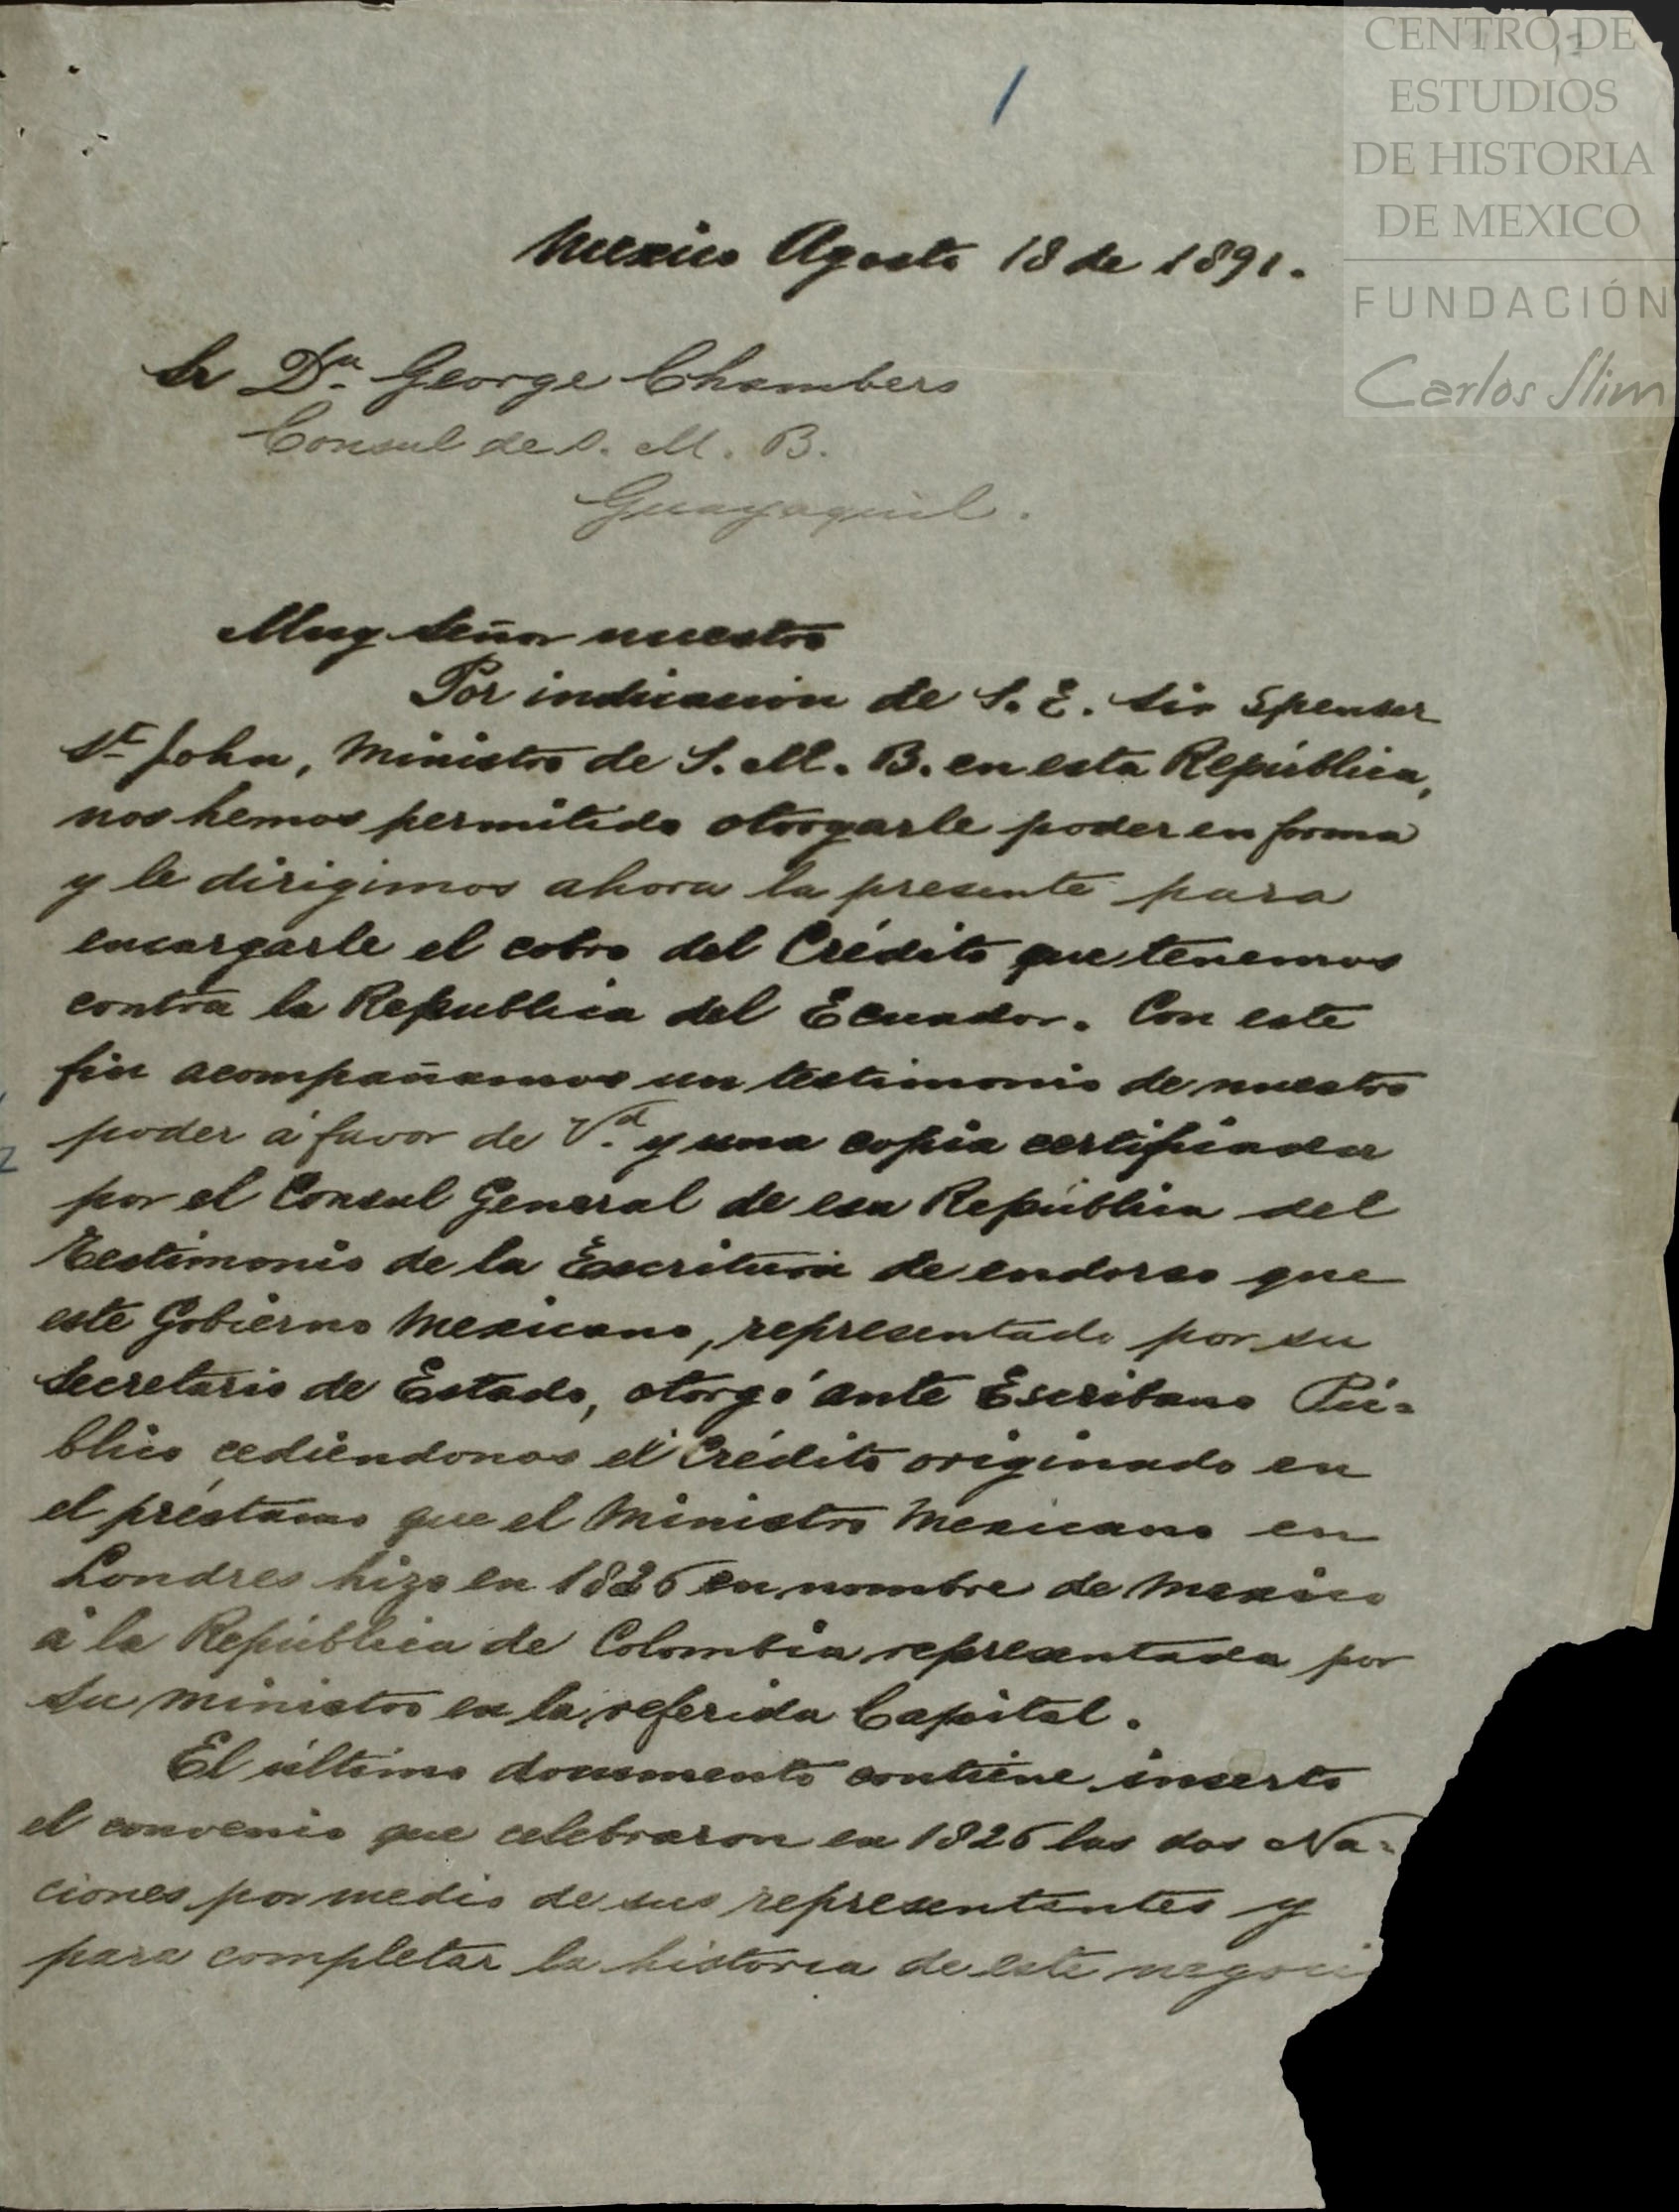 1
CENTRO DE
ESTUDIOS
DE HISTORIA
DE MEXICO
FUNDACIÓN
Carlos Slim
Mexico Agosto 18 de 1891.
Sr Dn. George Chambers
Consul de S. M. B.
Guayaquil.
Muy Señor nuestro
Por indicacion de S. E. Sir Spenser
St John, Ministro de S. M. B. en esta República,
nos hemos permitido otorgarle poder en forma
y le dirigimos ahora la presente para
encargarle el cobro del Crédito que tenemos
contra la Republica del Ecuador. Con este
fin acompañamos un testimonio de nuestro
poder á favor de Vd. y una copia certificada
por el Consul General de esa República del
Testimonio de la Escritura de endorso que
este Gobierno Mexicano, representado por su
Secretario de Estado, otorgó ante Escribano Pú=
blico cediéndonos el Crédito originado en
el préstamo que el Ministro Mexicano en
Londres hizo en 1826 en nombre de Mexico
á la República de Colombia representada por
su ministro en la referida Capital.
El último documento contiene inserto
el convenio que celebraron en 1826 las dos Na=
ciones por medio de sus representantes y
para completar la historia de este negoci